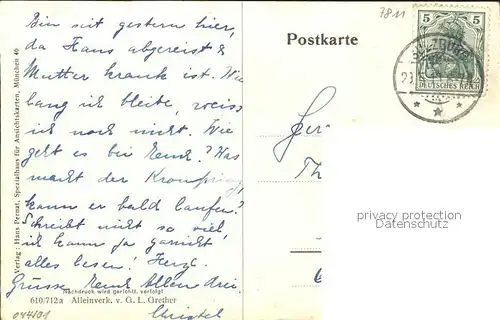 Bin seit gestern hier,
da Hans abgereist &
Mutter krank ist. Wie
lang ich bleibe, weiss
ich noch nicht. Wie
geht es bei Euch? Was
macht der Kronprinz,
kann er bald laufen?
Schreibt nicht so viel,
ich kann ja garnicht
alles lesen! Herzl.
Grüsse Euch Allen drei
Christel
Nachdruck wird gerichtl. verfolgt
610/712a Alleinverk. v. G. L. Grether
044101
Verlag: Hans Pernat, Spezialhaus für Ansichtskarten, München 46
Postkarte
7811
5 5
DEUTSCHES REICH
SULZBURG
privacy protection
Datenschutz